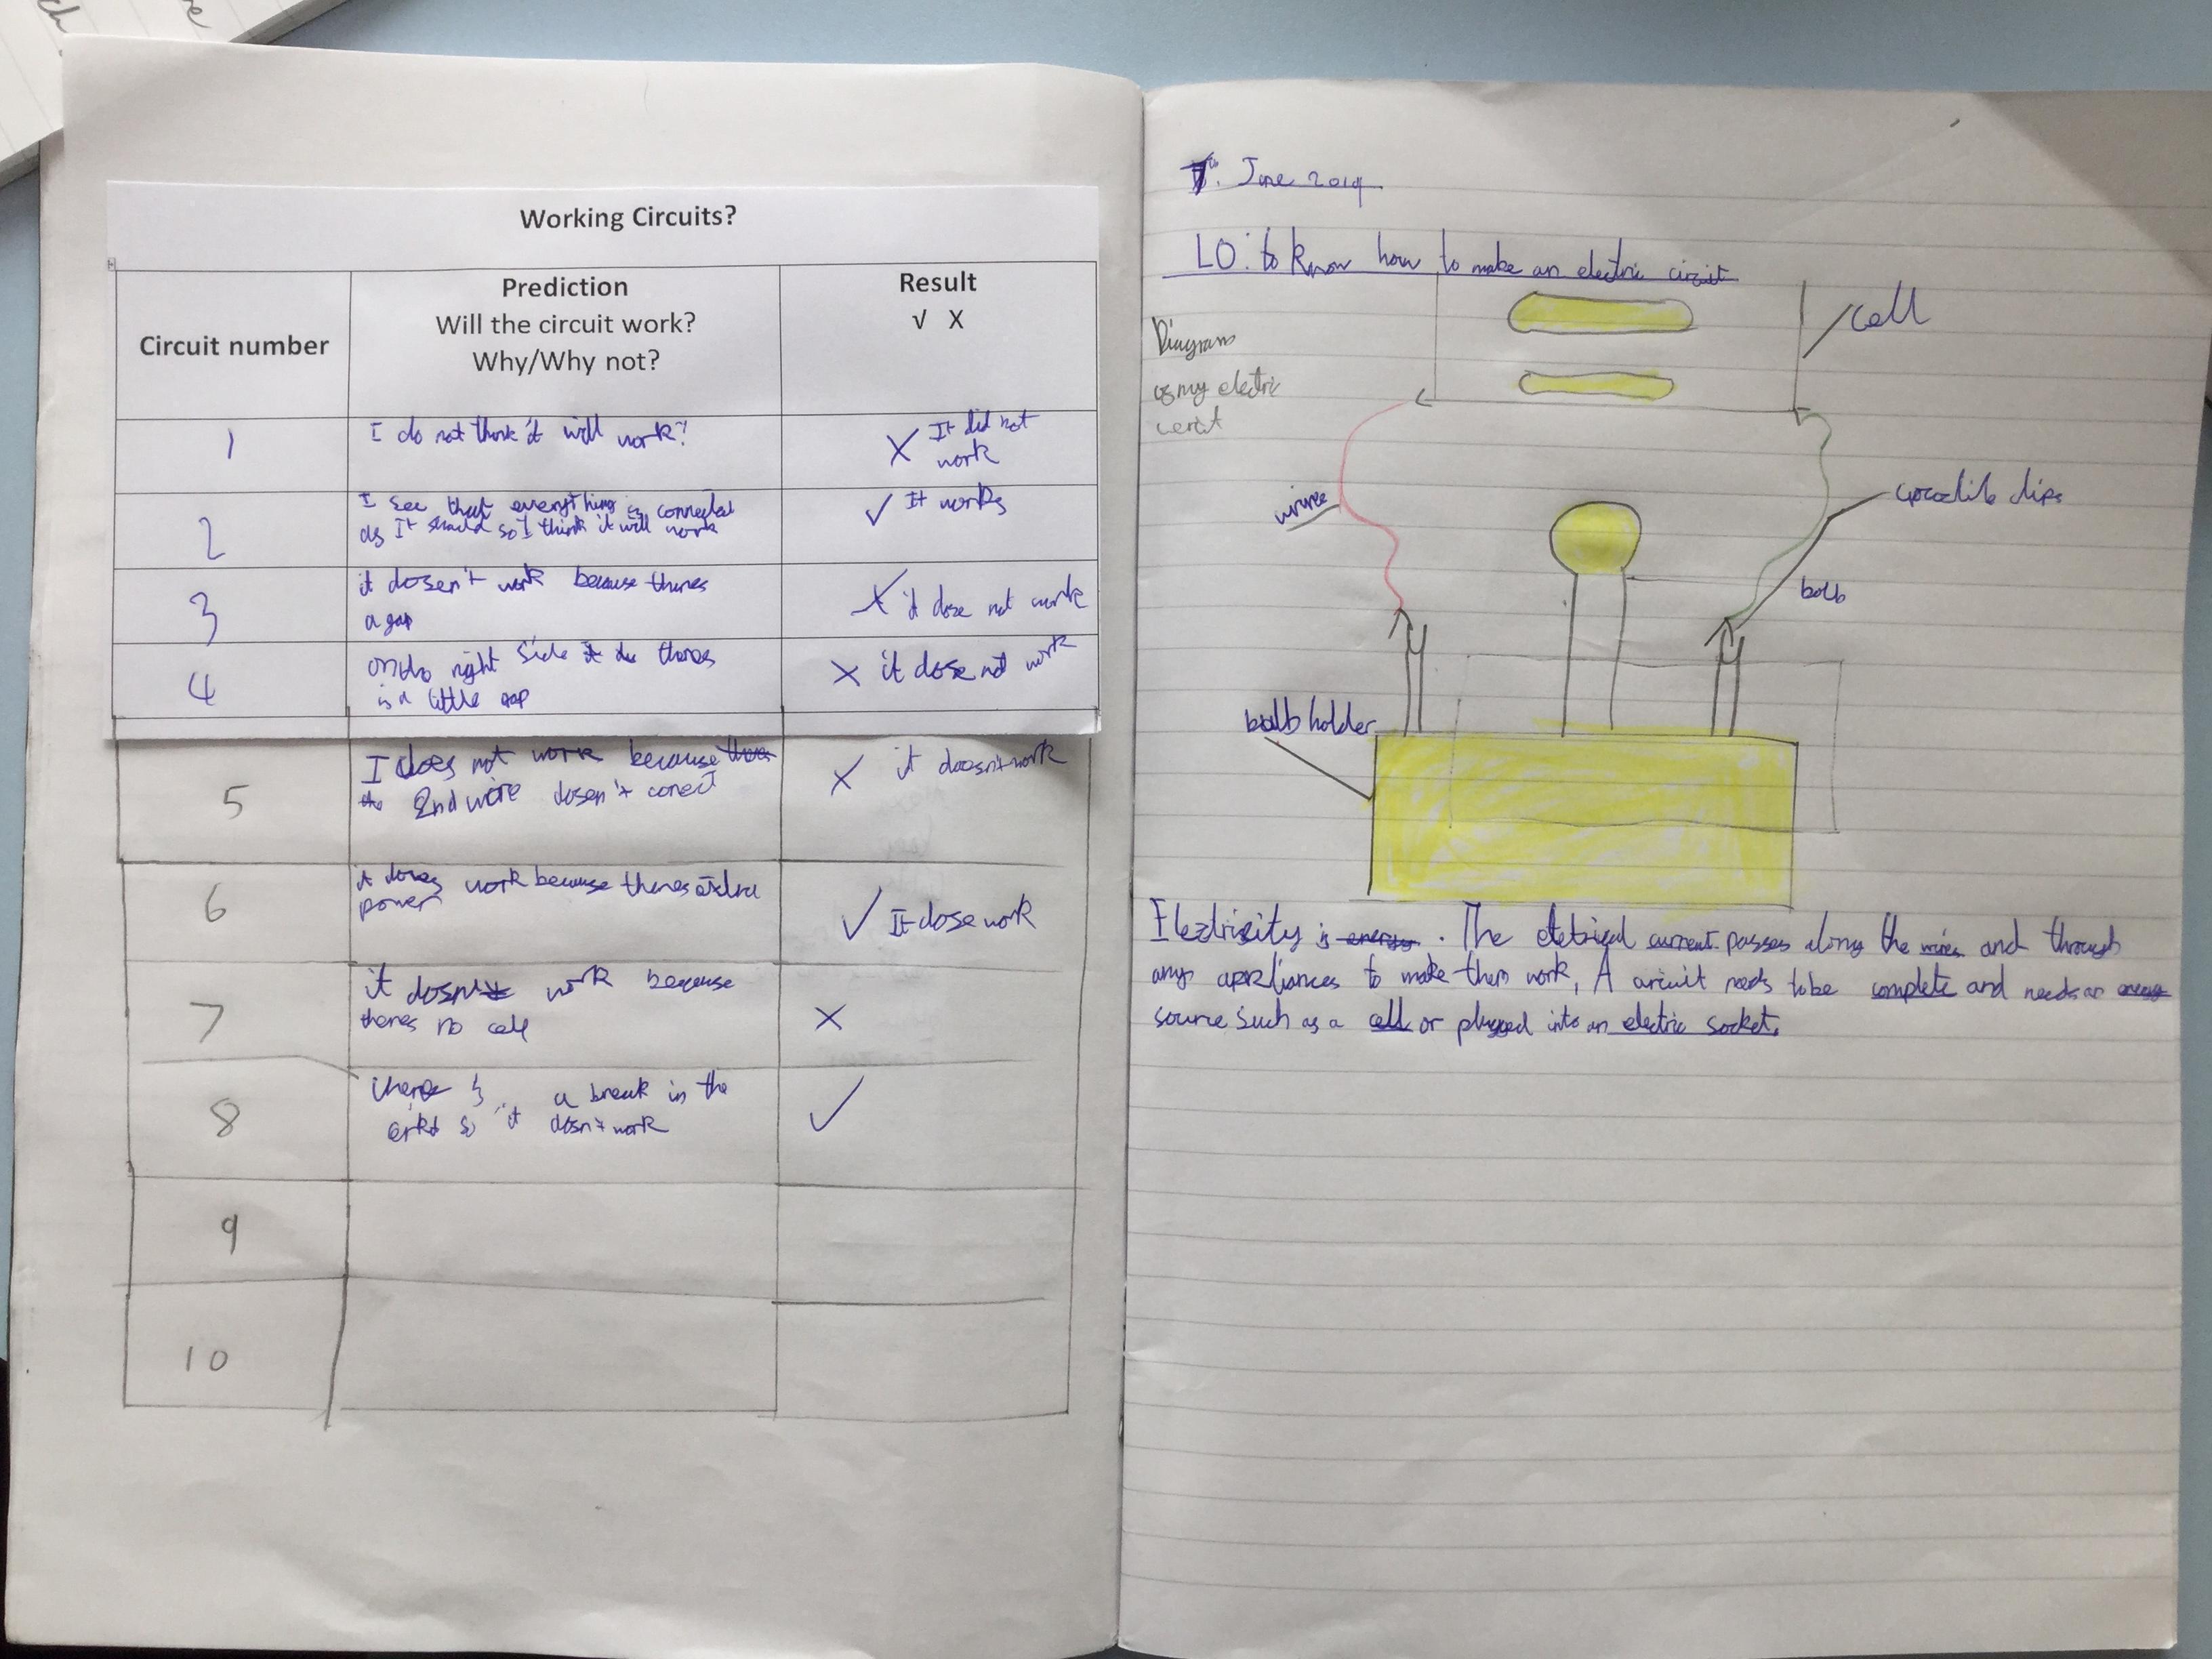 Working Circuits?
Circuit number
Prediction
Will the circuit work?
Why/Why not?
Result
√ X
1
I do not think it will work!
X It did not
work
2
I see that everything is connected
as It should so I think it will work
✓ It works
3
it dosen't work because theres
a gap
X it dose not work
4
on the right side theres
is a little gap
X it dose not work
5
I does not work because
the 2nd wire dosen't conect
X it doesn't work
6
it does work because theres extra
power
✓ It dose work
7
it dosnt work because
theres no cell
X
8
a break in the
so it dosn't work
✓
9
10
7th June 2019
LO: to know how to make an electric circuit
Diagram
of my electric
cell
wire
crocodile clips
bulb holder
Electricity is energy. The electrical current passes along the wires and through
any appliances to make them work, A circuit needs to be complete and needs an energy
source such as a cell or plugged into an electric socket.